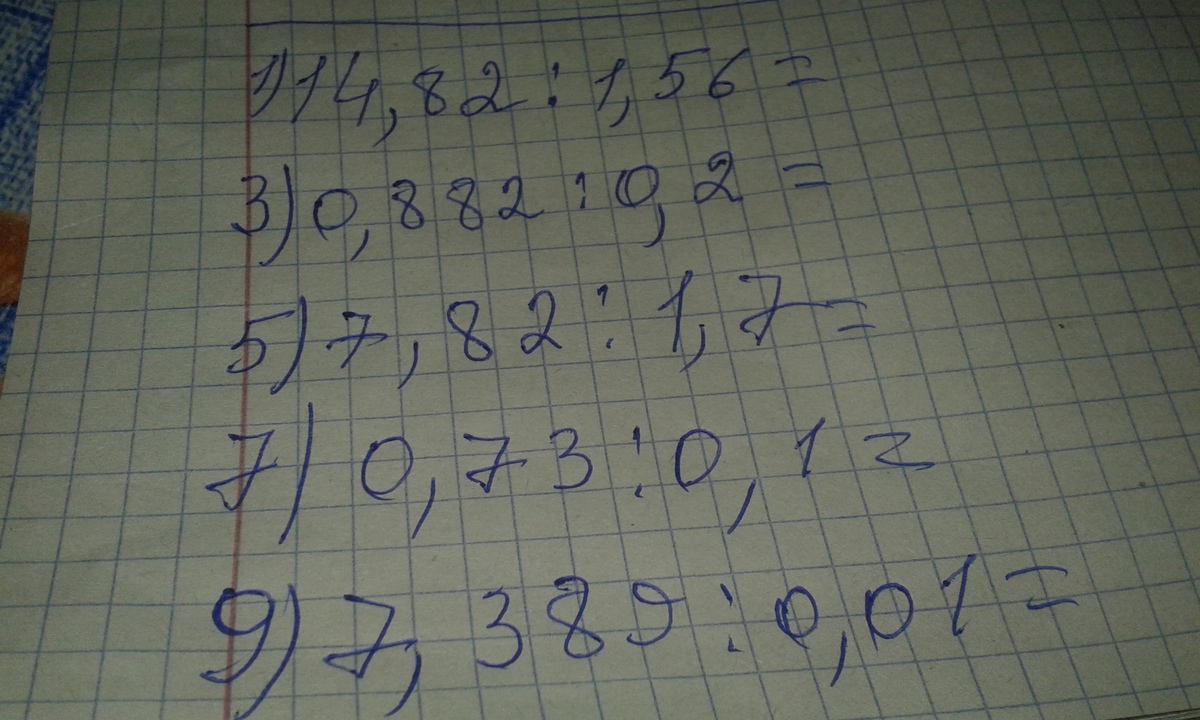 1) 14,82 : 1,56 =
3) 0,882 : 0,2 =
5) 7,82 : 1,7 =
7) 0,73 : 0,1 =
9) 7,389 : 0,01 =